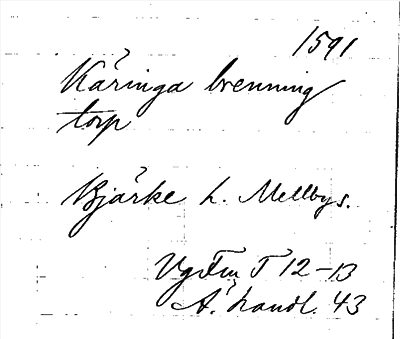 1591
Käringa brenning
torp
Bjärke h. Mellbys.
Vg Fm T 12-13
Ä. handl. 43